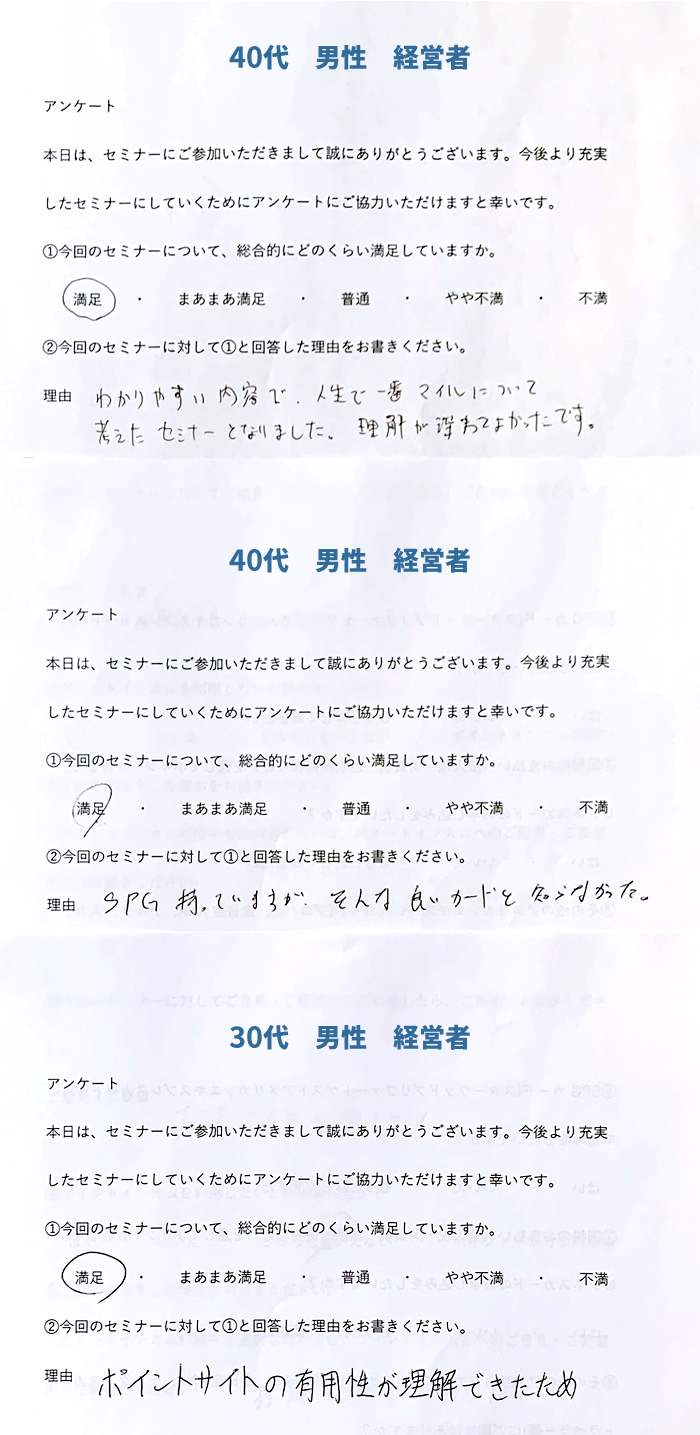 40代　男性　経営者
アンケート
本日は、セミナーにご参加いただきまして誠にありがとうございます。今後より充実
したセミナーにしていくためにアンケートにご協力いただけますと幸いです。
①今回のセミナーについて、総合的にどのくらい満足していますか。
満足　・　まあまあ満足　・　普通　・　やや不満　・　不満
②今回のセミナーに対して①と回答した理由をお書きください。
理由　わかりやすい内容で、人生で一番マイルについて
考えたセミナーとなりました。理解が深めてよかったです。
40代　男性　経営者
アンケート
本日は、セミナーにご参加いただきまして誠にありがとうございます。今後より充実
したセミナーにしていくためにアンケートにご協力いただけますと幸いです。
①今回のセミナーについて、総合的にどのくらい満足していますか。
満足　・　まあまあ満足　・　普通　・　やや不満　・　不満
②今回のセミナーに対して①と回答した理由をお書きください。
理由　SPG 持っていますが、そんな良いカードと知らなかった。
30代　男性　経営者
アンケート
本日は、セミナーにご参加いただきまして誠にありがとうございます。今後より充実
したセミナーにしていくためにアンケートにご協力いただけますと幸いです。
①今回のセミナーについて、総合的にどのくらい満足していますか。
満足　・　まあまあ満足　・　普通　・　やや不満　・　不満
②今回のセミナーに対して①と回答した理由をお書きください。
理由　ポイントサイトの有用性が理解できたため